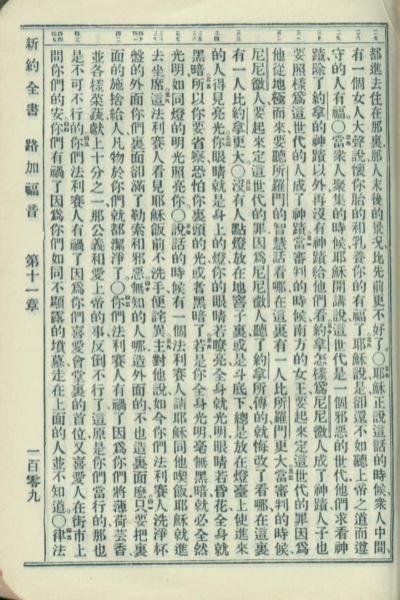 都進去住在那裏那人末後的景況比先前更不好了〇耶穌正說這話的時候衆人中間
有一個女人大聲說懷你胎的和乳養你的有福了耶穌說是卻還不如聽上帝之道而遵
守的人有福〇當衆人聚集的時候耶穌開講說這世代是一個邪惡的世代他們求看神
蹟除了約拿的神蹟以外再沒有神蹟給他們看約拿怎樣爲尼尼微人成了神蹟人子也
要照樣爲這世代的人成了神蹟當審判的時候南方的女王要起來定這世代的罪因爲
他從地極而來要聽所羅門的智慧話看哪在這裏有一人比所羅門更大當審判的時候
尼尼微人要起來定這世代的罪因爲尼尼微人聽了約拿所傳的就悔改了看哪在這裏
有一人比約拿更大〇沒有人點燈放在地窨子裏或是斗底下總是放在燈臺上使進來
的人得見亮光你眼睛就是身上的燈你的眼睛若瞭亮全身就光明眼睛若昏花全身就
黑暗所以你要省察恐怕你裏頭的光或者黑暗了若是你全身光明毫無黑暗就必全然
光明如同燈的明光照亮你〇說話的時候有一個法利賽人請耶穌同他喫飯耶穌就進
去坐席這法利賽人看見耶穌飯前不洗手便詫異主對他說如今你們法利賽人洗淨杯
盤的外面你們裏面卻滿了勒索和邪惡無知的人哪造外面的不也造裏面麽只要把裏
面的施捨給人凡物於你們就都潔淨了〇你們法利賽人有禍了因爲你們將薄荷芸香
並各樣菜蔬獻上十分之一那公義和愛上帝的事反倒不行了這原是你們當行的那也
是不可不行的你們法利賽人有禍了因爲你們喜愛會堂裏的首位又喜愛人在街市上
問你們的安你們有禍了因爲你們如同不顯露的墳墓走在上面的人並不知道〇律法
新約全書 路加福音 第十一章 一百零九